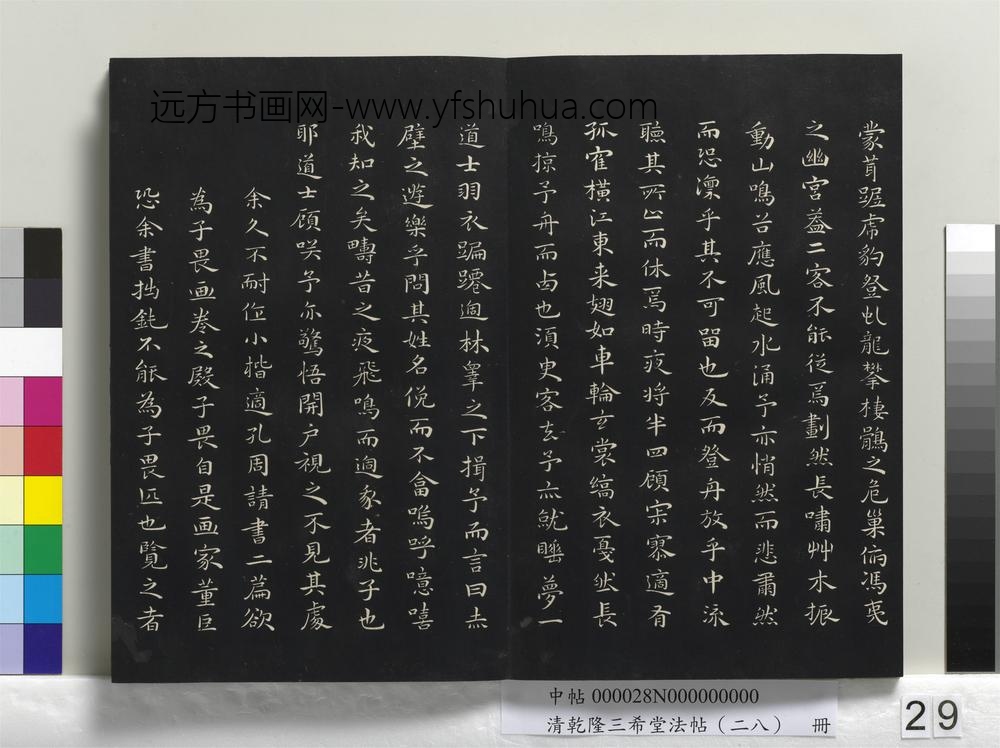 远方书画网-www.yfshuhua.com
蒙茸踞虎豹登虬龍攀棲鶻之危巢俯馮夷
之幽宮蓋二客不能從焉劃然長嘯艸木振
動山鳴谷應風起水涌予亦悄然而悲肅然
而恐凜乎其不可留也反而登舟放乎中流
聽其所止而休焉時夜將半四顧寂寥適有
孤隺橫江東来翅如車輪玄裳縞衣戛然長
鳴掠予舟而西也須臾客去予亦就睡夢一
道士羽衣蹁躚過林皋之下揖予而言曰赤
壁之遊樂乎問其姓名俛而不畣嗚呼噫嘻
我知之矣疇昔之夜飛鳴而過我者非子也
耶道士顧咲予亦驚悟開户視之不見其處
余久不耐作小楷適孔周請書二篇欲
為子畏画卷之殿子畏自是画家董巨
恐余書拙鈍不能為子畏匹也覽之者
中帖 000028N000000000
清乾隆三希堂法帖（二八） 冊
29